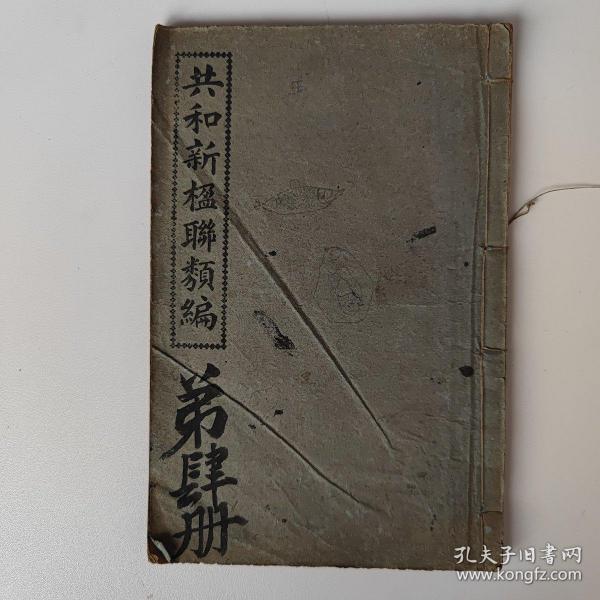 共和新楹聯類編
弟肆册
孔夫子旧书网
www.kongfz.com